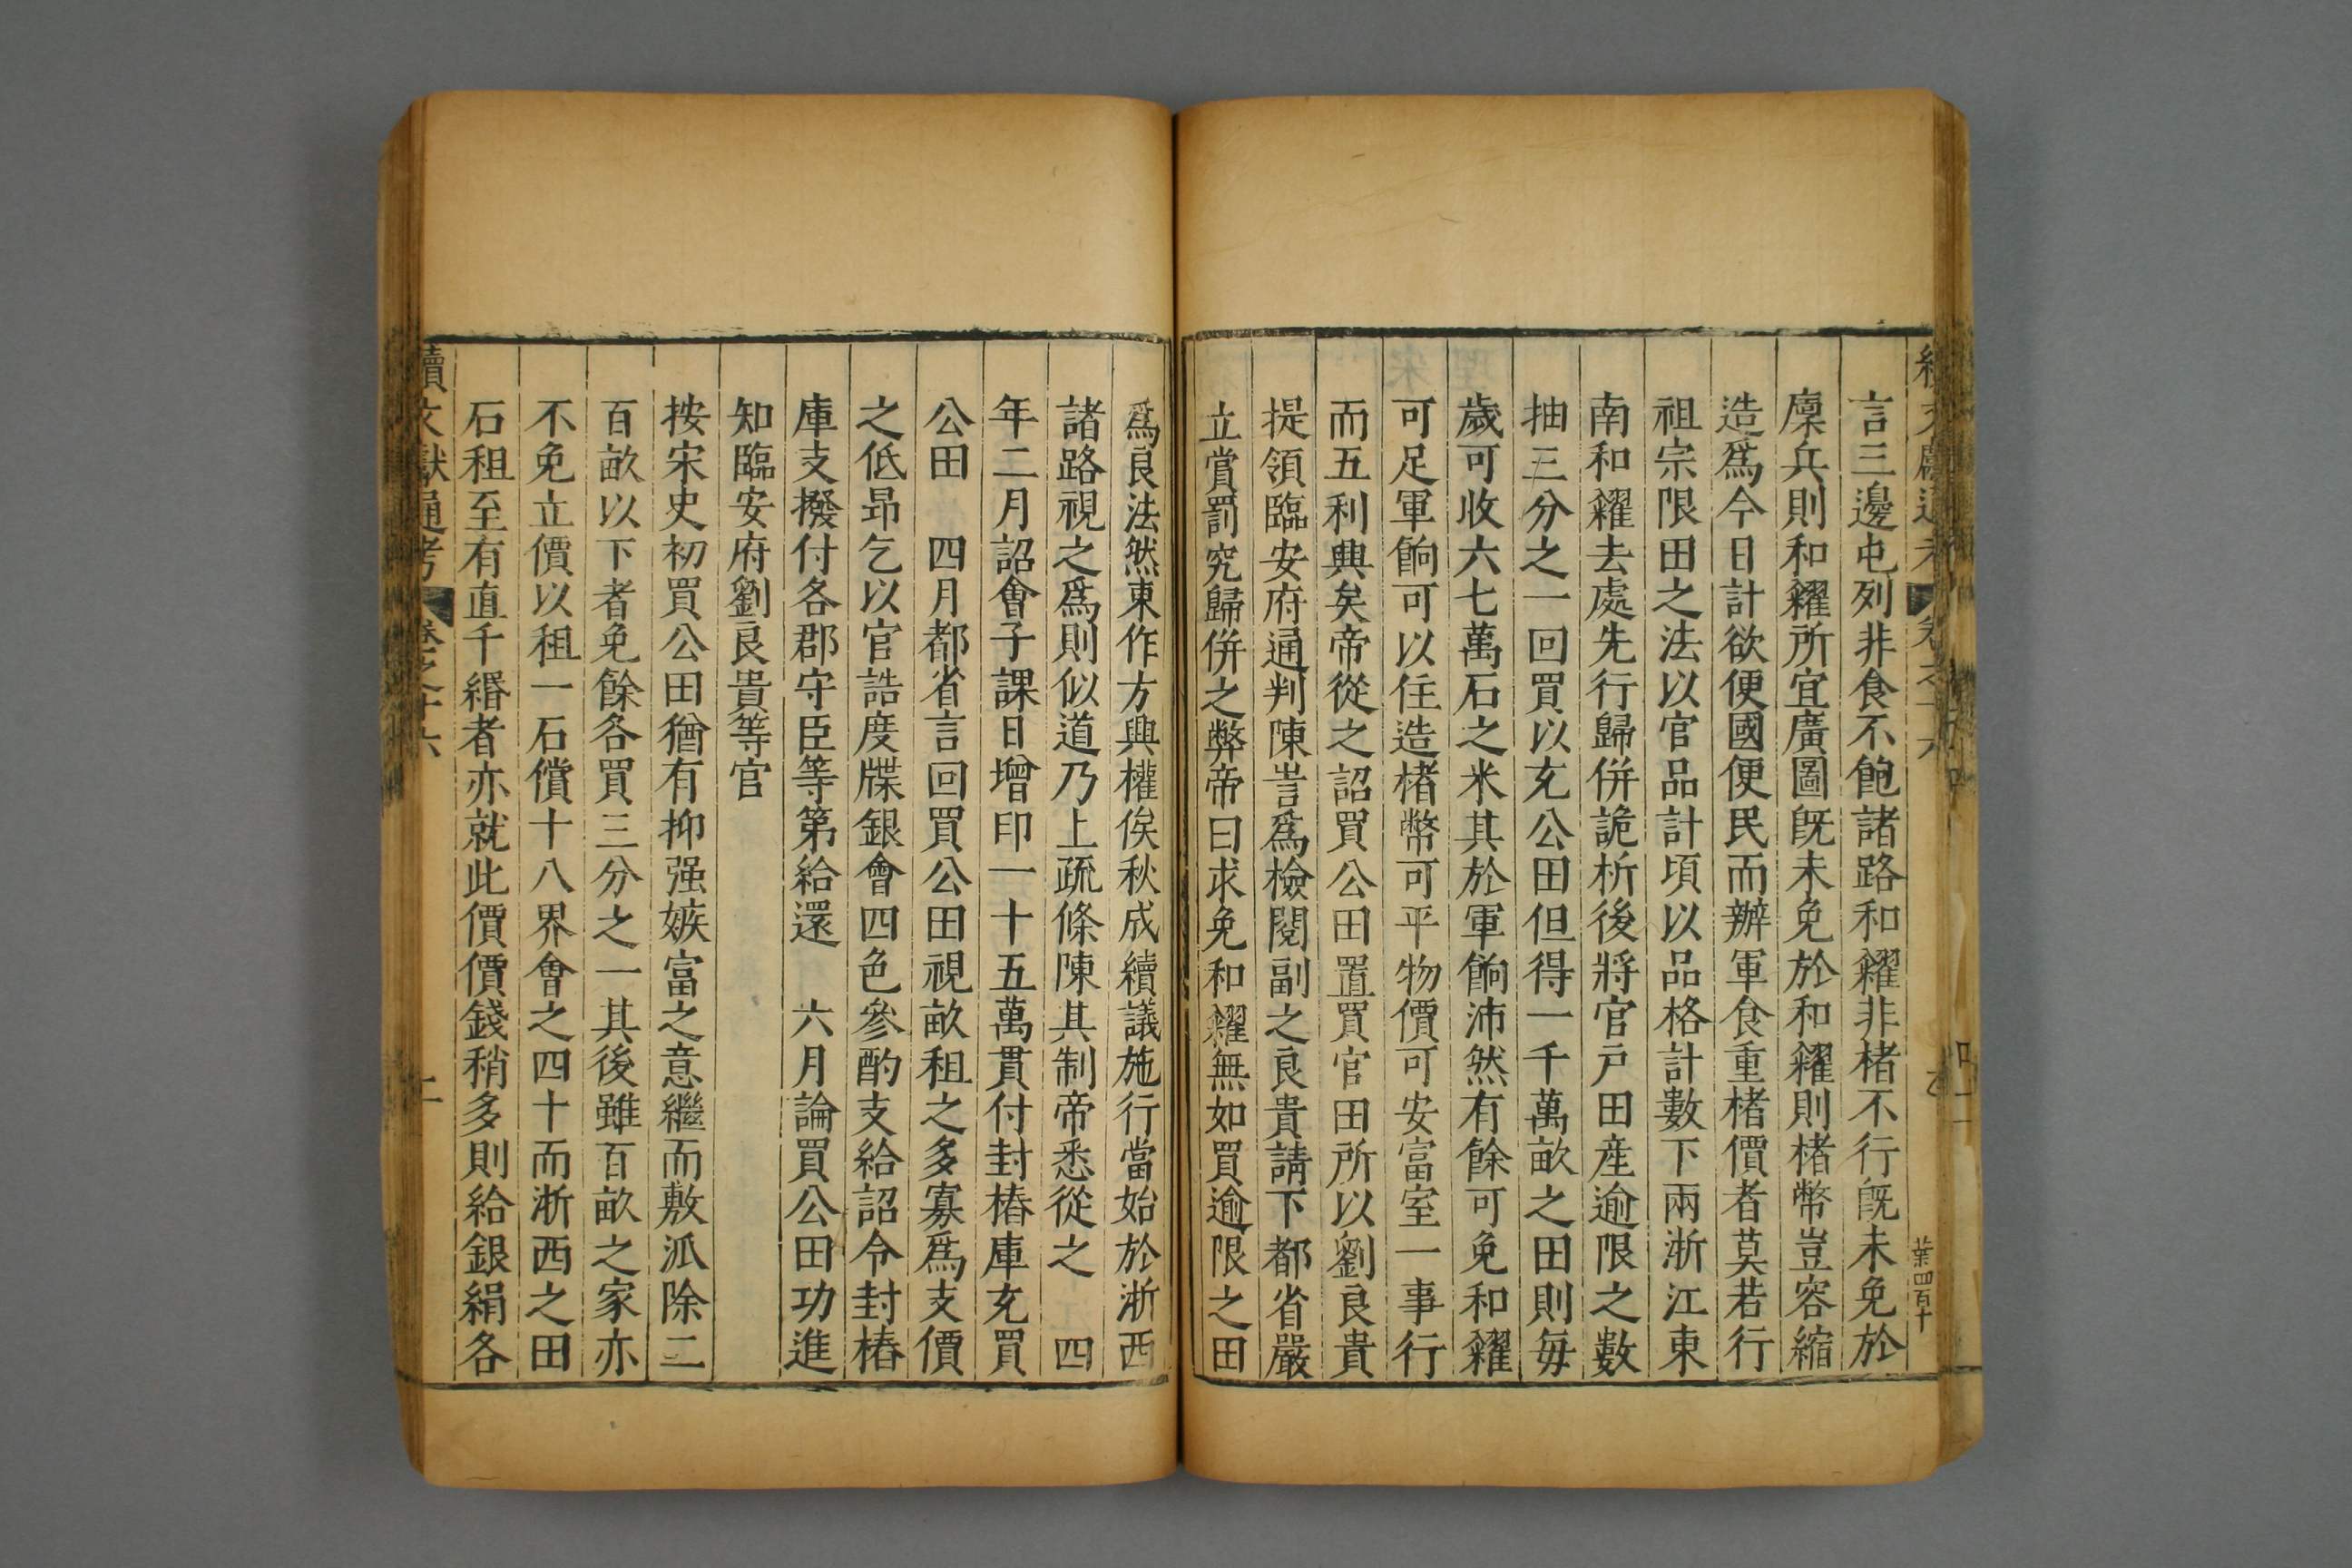 言三邊屯列非食不飽諸路和糴非楮不行旣未免於
廩兵則和糴所宜廣圖旣未免於和糴則楮幣豈容縮
造爲今日計欲便國便民而辦軍食重楮價者莫若行
祖宗限田之法以官品計頃以品格計數下兩浙江東
南和糴去處先行歸併詭析後將官戸田産逾限之數
抽三分之一回買以充公田但得一千萬畝之田則每
歲可收六七萬石之米其於軍餉沛然有餘可免和糴
可足軍餉可以住造楮幣可平物價可安富室一事行
而五利興矣帝從之詔買公田置買官田所以劉良貴
提領臨安府通判陳訔爲檢閱副之良貴請下都省嚴
立賞罰究歸併之弊帝曰求免和糴無如買逾限之田
爲良法然東作方興權俟秋成續議施行當始於浙西
諸路視之爲則似道乃上疏條陳其制帝悉從之 四
年二月詔會子課日增印一十五萬貫付封樁庫充買
公田 四月都省言回買公田視畝租之多寡爲支價
之低昻乞以官誥度牒銀會四色參酌支給詔令封樁
庫支撥付各郡守臣等第給還 六月論買公田功進
知臨安府劉良貴等官
按宋史初買公田猶有抑强嫉富之意繼而敷派除二
百畝以下者免餘各買三分之一其後雖百畝之家亦
不免立價以租一石償十八界會之四十而浙西之田
石租至有直千緡者亦就此價價錢稍多則給銀絹各
續文獻通考 卷之六 二